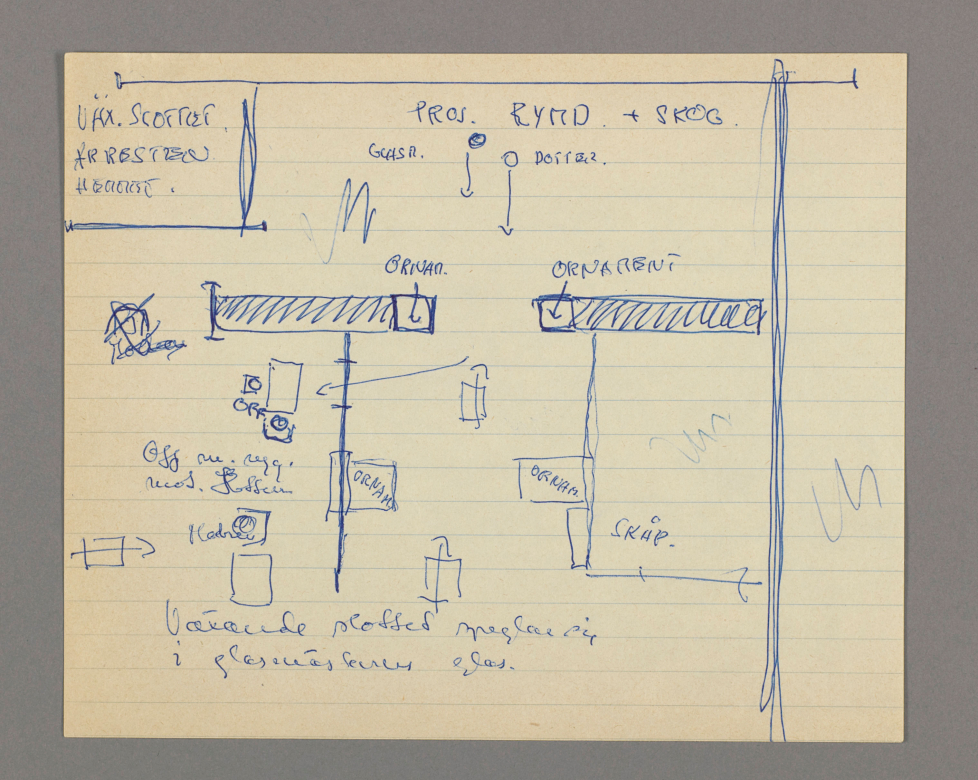 VÄX. SLOTTET.
ARRESTEN
HEMMET.
PROJ. RYMD. + SKOG.
GLASM.
DOTTER.
ORNAM.
ORNAMENT
OFF.
Off m. rygg.
mot.
ORNAM.
ORNAM.
SKÅP.
Växande slottet speglar sig
i glasmästarens glas.